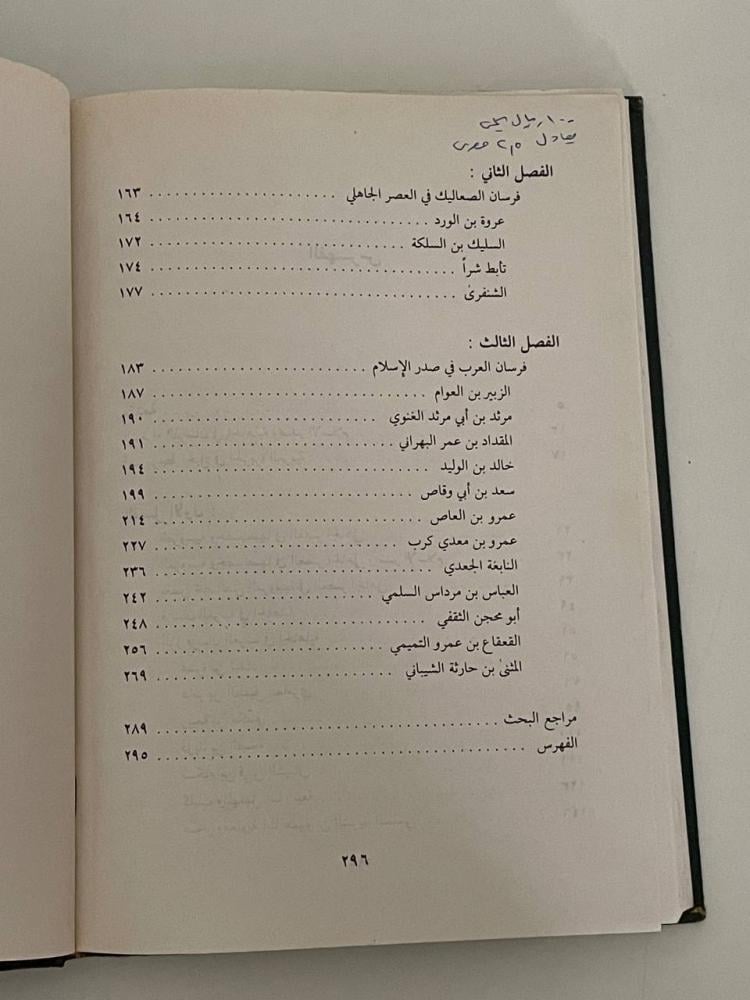 ١٠٠ ريال يمني
يعادل ٢٥ مصرى
الفصل الثاني :
فرسان الصعاليك في العصر الجاهلي ..................... ١٦٣
عروة بن الورد ..................... ١٦٤
السليك بن السلكة ..................... ١٧٢
تأبط شراً ..................... ١٧٤
الشنفرىٰ ..................... ١٧٧
الفصل الثالث :
فرسان العرب في صدر الإسلام ..................... ١٨٣
الزبير بن العوام ..................... ١٨٧
مرثد بن أبي مرثد الغنوي ..................... ١٩٠
المقداد بن عمر البهراني ..................... ١٩١
خالد بن الوليد ..................... ١٩٤
سعد بن أبي وقاص ..................... ١٩٩
عمرو بن العاص ..................... ٢١٤
عمرو بن معدي كرب ..................... ٢٢٧
النابغة الجعدي ..................... ٢٣٦
العباس بن مرداس السلمي ..................... ٢٤٢
أبو محجن الثقفي ..................... ٢٤٨
القعقاع بن عمرو التميمي ..................... ٢٥٦
المثنىٰ بن حارثة الشيباني ..................... ٢٦٩
مراجع البحث ..................... ٢٨٩
الفهرس ..................... ٢٩٥
٢٩٦